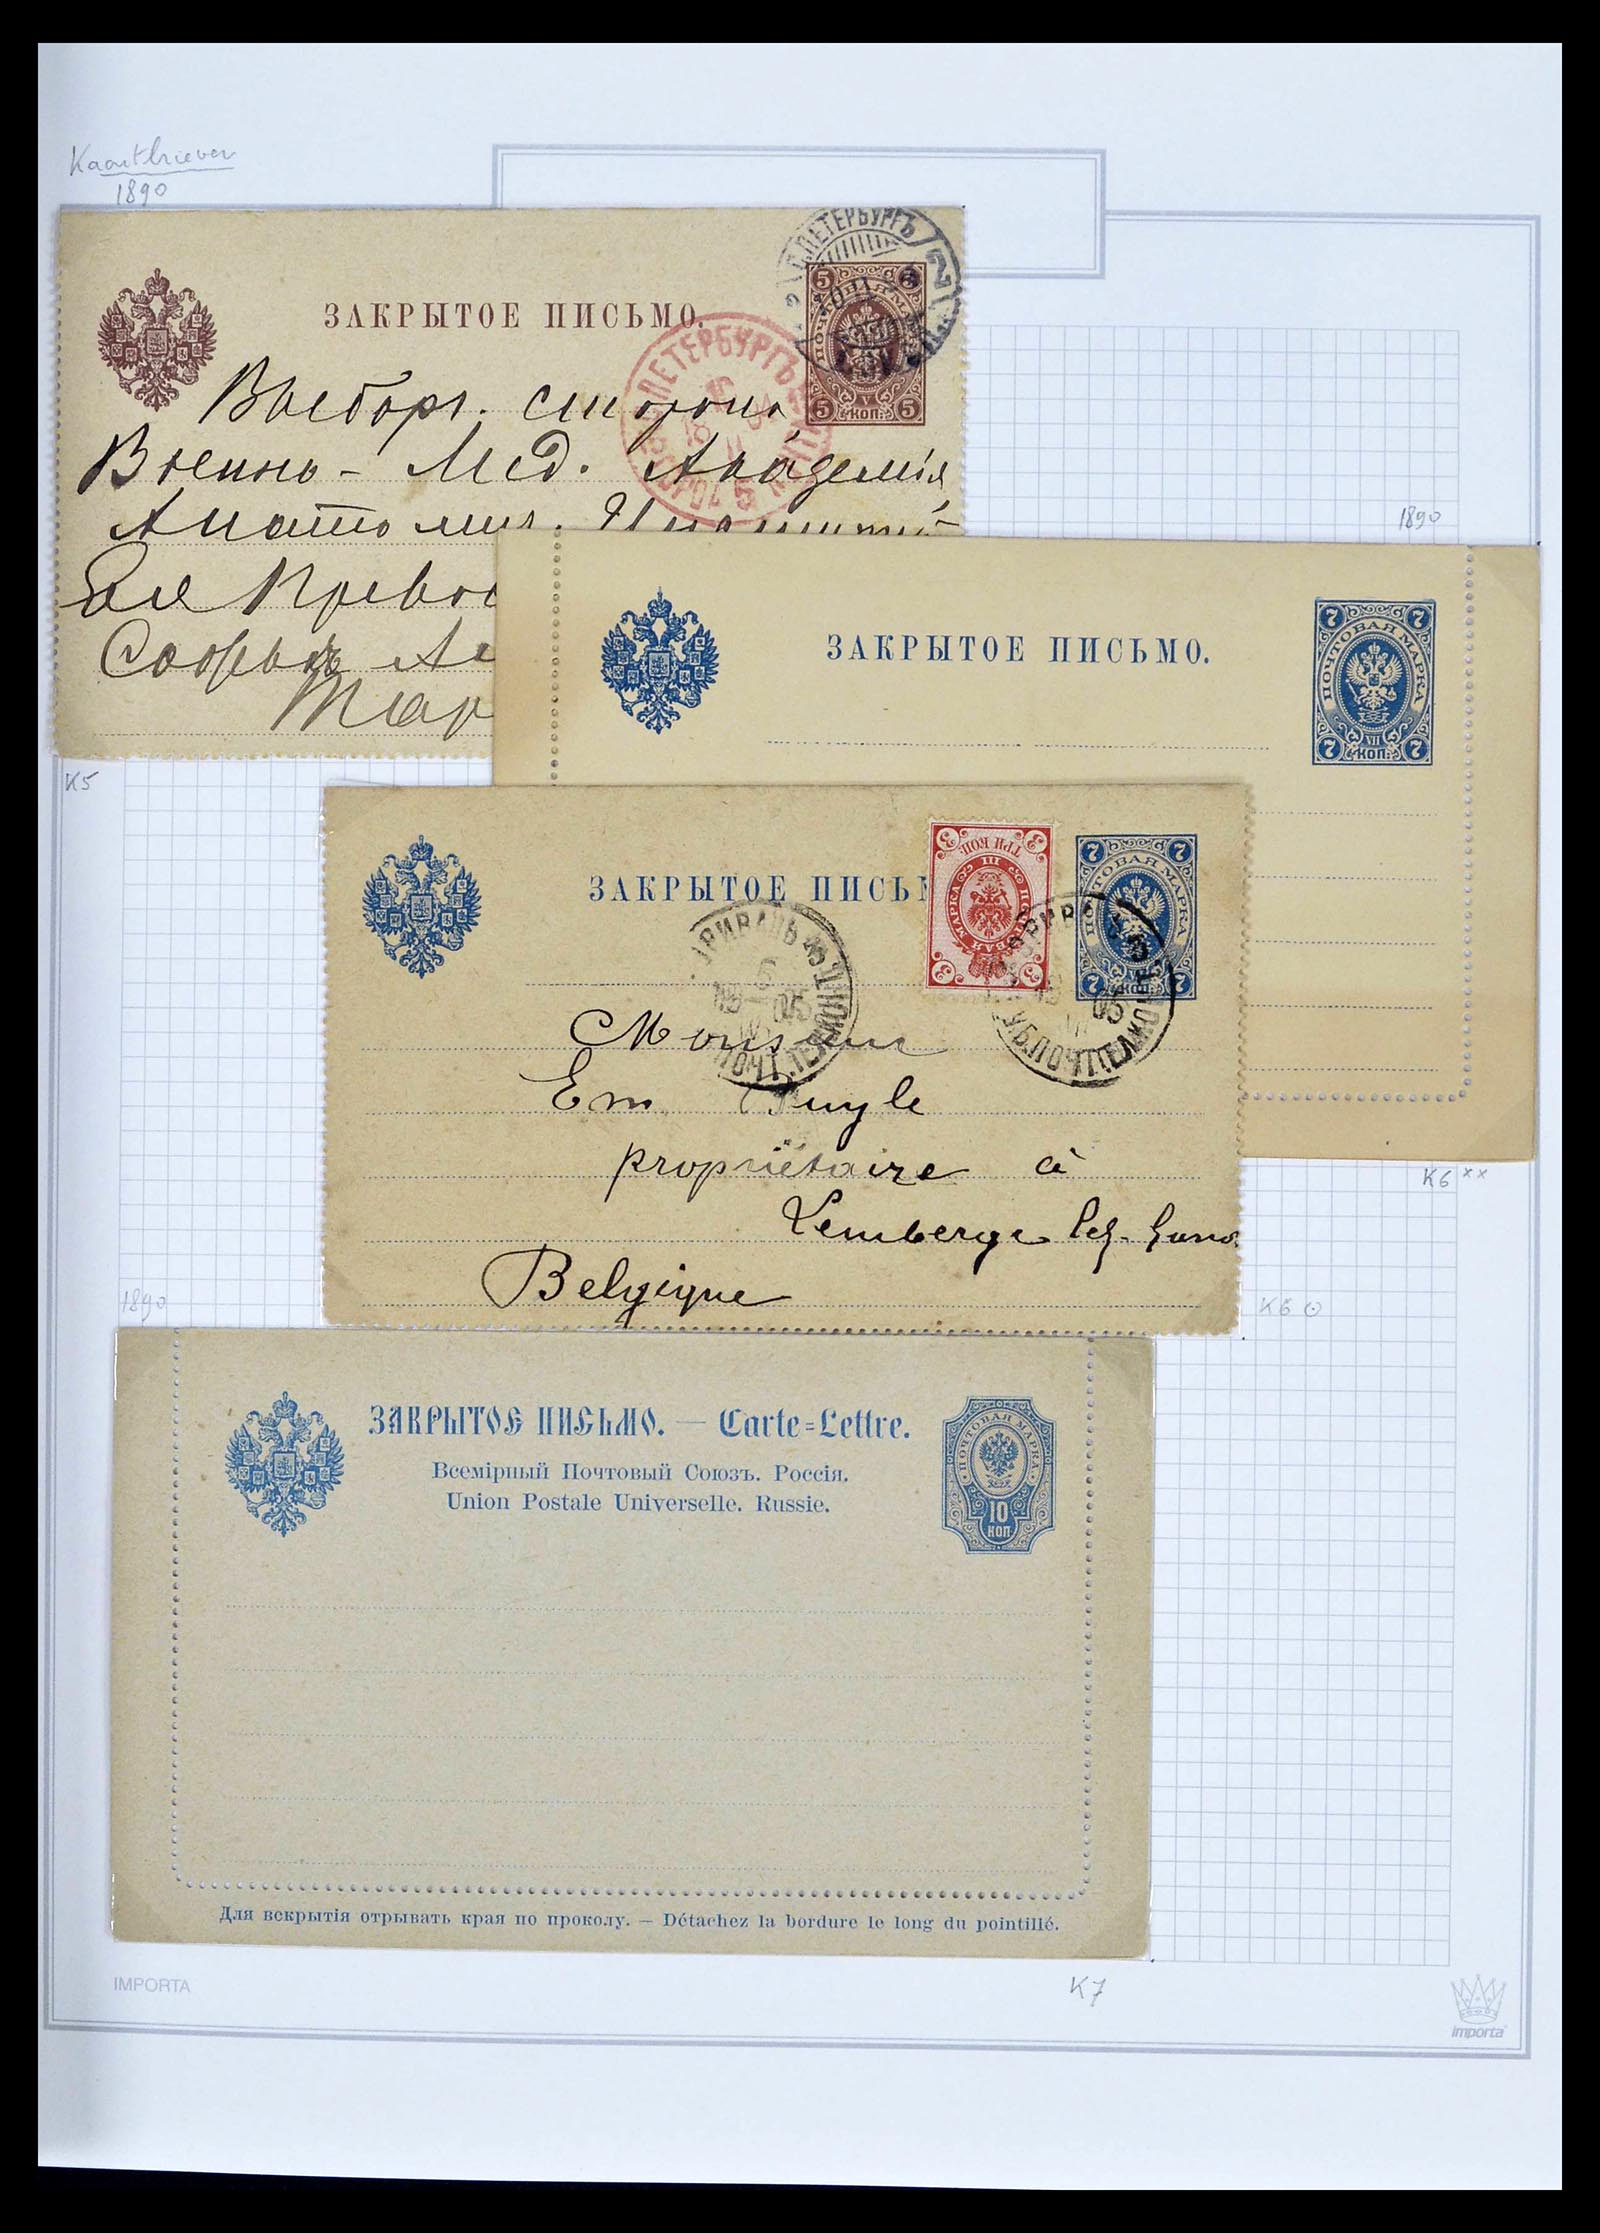 Kaartbrieven
1890
ЗАКРЫТОЕ ПИСЬМО.
С.ПЕТЕРБУРГЪ
5 5
ПОЧТОВАЯ МАРКА
V
5 КОП. 5
С.ПЕТЕРБУРГЪ
Выборг. сторона
Военно-Мед. Академія
Анатомич.
Для
K5
1890
ЗАКРЫТОЕ ПИСЬМО.
7 7
ПОЧТОВАЯ МАРКА
VII
7 КОП. 7
K6 xx
ЗАКРЫТОЕ ПИСЬМ
3 3
ТРИ КОП.
III
ПОЧТОВАЯ МАРКА
3 3
7 7
ПОЧТОВАЯ МАРКА
7 КОП. 7
Monsieur
Em. Buyle
propriétaire à
Lemberge lez-Gand
Belgique
K6 ⊙
1890
ЗАКРЫТОЕ ПИСЬМО. — Carte-Lettre.
Всемірный Почтовый Союзъ. Россія.
Union Postale Universelle. Russie.
ПОЧТОВАЯ МАРКА
10
КОП
Для вскрытія отрывать края по проколу. — Détachez la bordure le long du pointillé.
IMPORTA
K7
importa